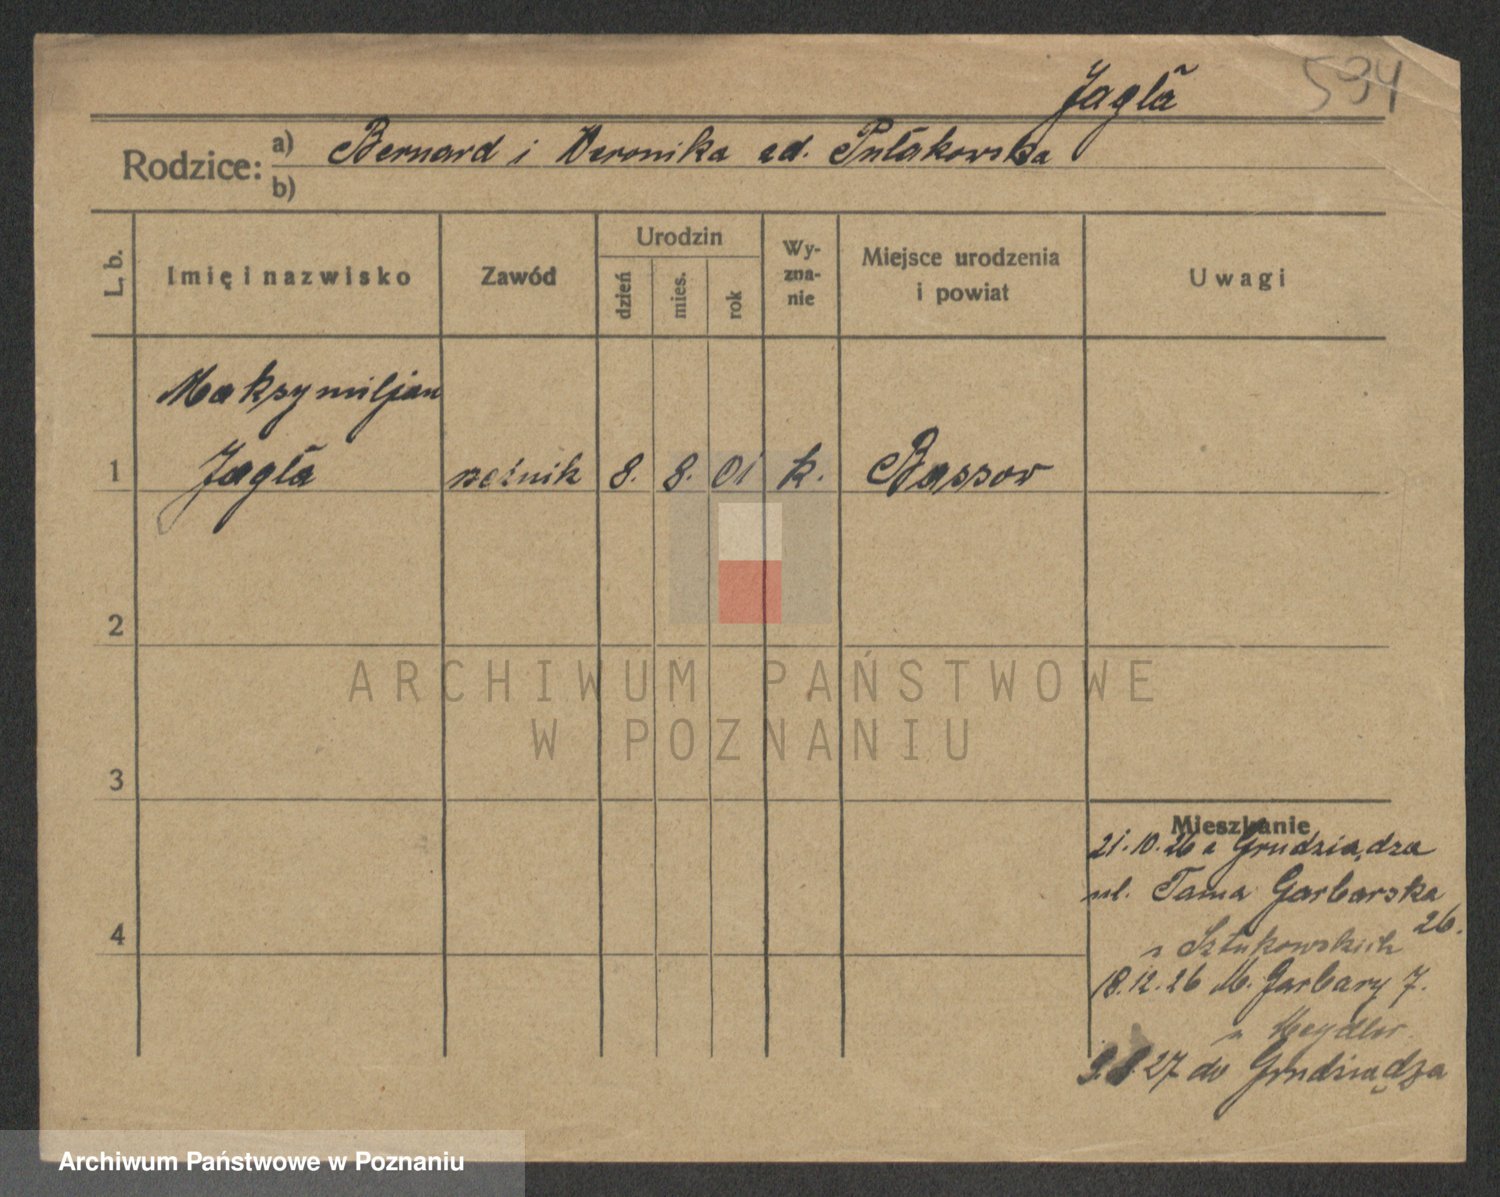 Jagła
594
Rodzice:
a) Bernard i Weronika zd. Pułakowska
b)
L. b.
Imię i nazwisko
Zawód
Urodzin
dzień
mies.
rok
Wy-
zna-
nie
Miejsce urodzenia
i powiat
Uwagi
Maksymiljan
1 Jagła rzeźnik 8. 8. 01 k. Bassow
2
3
4
Mieszkanie
21.10.26 z Grudziądza
ul. Tama Garbarska
26.
u Sztukowskich
18.12.26 M. Garbary 7.
u Heydler
27 do Grudziądza
ARCHIWUM PAŃSTWOWE
W POZNANIU
Archiwum Państwowe w Poznaniu